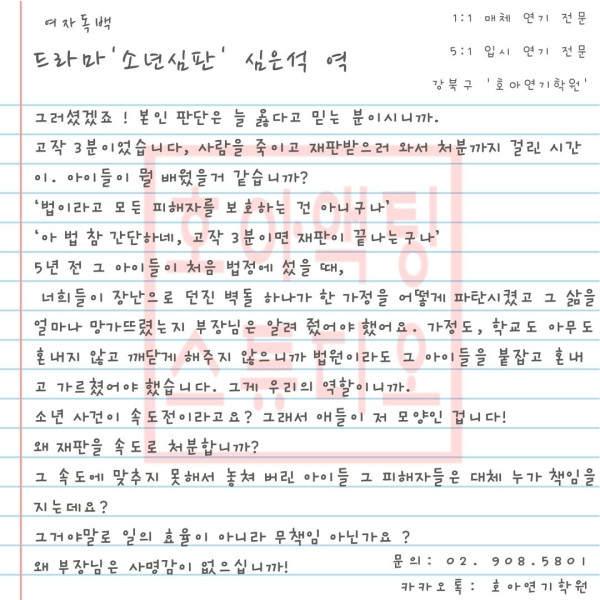 여자독백
1:1 매체 연기 전문
드라마'소년심판' 심은석 역
5:1 입시 연기 전문
강북구 '호아연기학원'
그러셨겠죠 ! 본인 판단은 늘 옳다고 믿는 분이시니까.
고작 3분이었습니다, 사람을 죽이고 재판받으러 와서 처분까지 걸린 시간
이. 아이들이 뭘 배웠을거 같습니까?
'법이라고 모든 피해자를 보호하는 건 아니구나'
'아 법 참 간단하네, 고작 3분이면 재판이 끝나는구나'
5년 전 그 아이들이 처음 법정에 섰을 때,
너희들이 장난으로 던진 벽돌 하나가 한 가정을 어떻게 파탄시켰고 그 삶을
얼마나 망가뜨렸는지 부장님은 알려 줬어야 했어요. 가정도, 학교도 아무도
혼내지 않고 깨닫게 해주지 않으니까 법원이라도 그 아이들을 붙잡고 혼내
고 가르쳤어야 했습니다. 그게 우리의 역할이니까.
소년 사건이 속도전이라고요? 그래서 애들이 저 모양인 겁니다!
왜 재판을 속도로 처분합니까?
그 속도에 맞추지 못해서 놓쳐 버린 아이들 그 피해자들은 대체 누가 책임을
지는데요?
그거야말로 일의 효율이 아니라 무책임 아닌가요 ?
왜 부장님은 사명감이 없으십니까!
문의: 02. 908.5801
카카오톡: 호아연기학원
호아액팅
스튜디오